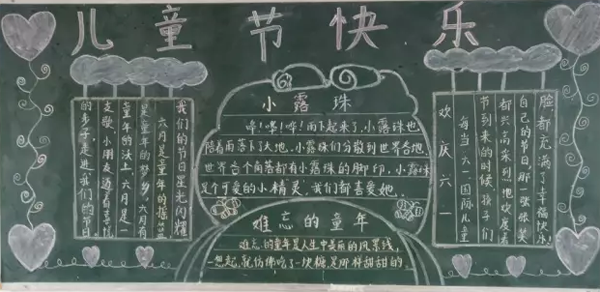 儿童节快乐
我们的节日星光闪耀
六月是童年的摇篮
是童年的梦乡,六月有
童年的沃土,六月是一
支歌,小朋友迈着喜悦
的步子走进我们的节日
小露珠
哗!哗!哗!雨下起来了,小露珠也
陪着雨落下了大地,小露珠们分散到世界各地,
世界各个角落都有小露珠的脚印,小露珠
是个可爱的小精灵,我们都喜爱她.
难忘的童年
难忘的童年是人生中美丽的风景线,
一想起,就仿佛吃了一块糖是那样甜甜的.
欢庆六一
每当六一国际儿童
节到来的时候,孩子们
都兴高采烈地欢度着
自己的节日,那一张张笑
脸都充满了幸福快乐!